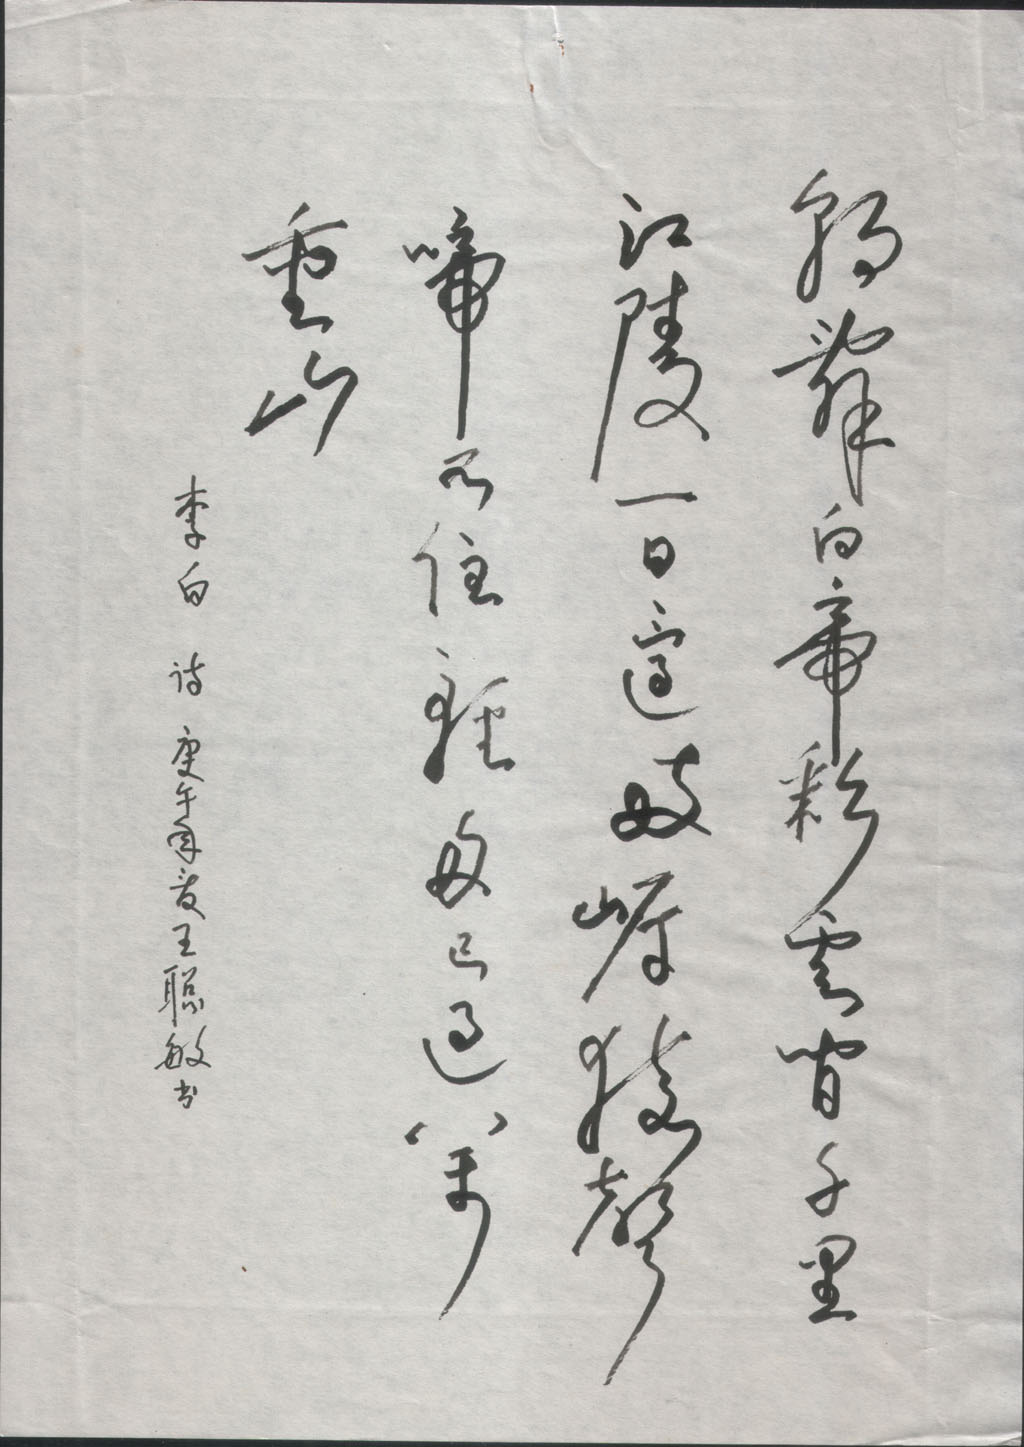 朝辭白帝彩雲間千里
江陵一日還兩岸猿聲
啼不住輕舟已過萬
重山
李白 诗 庚午年夏王聪敏书